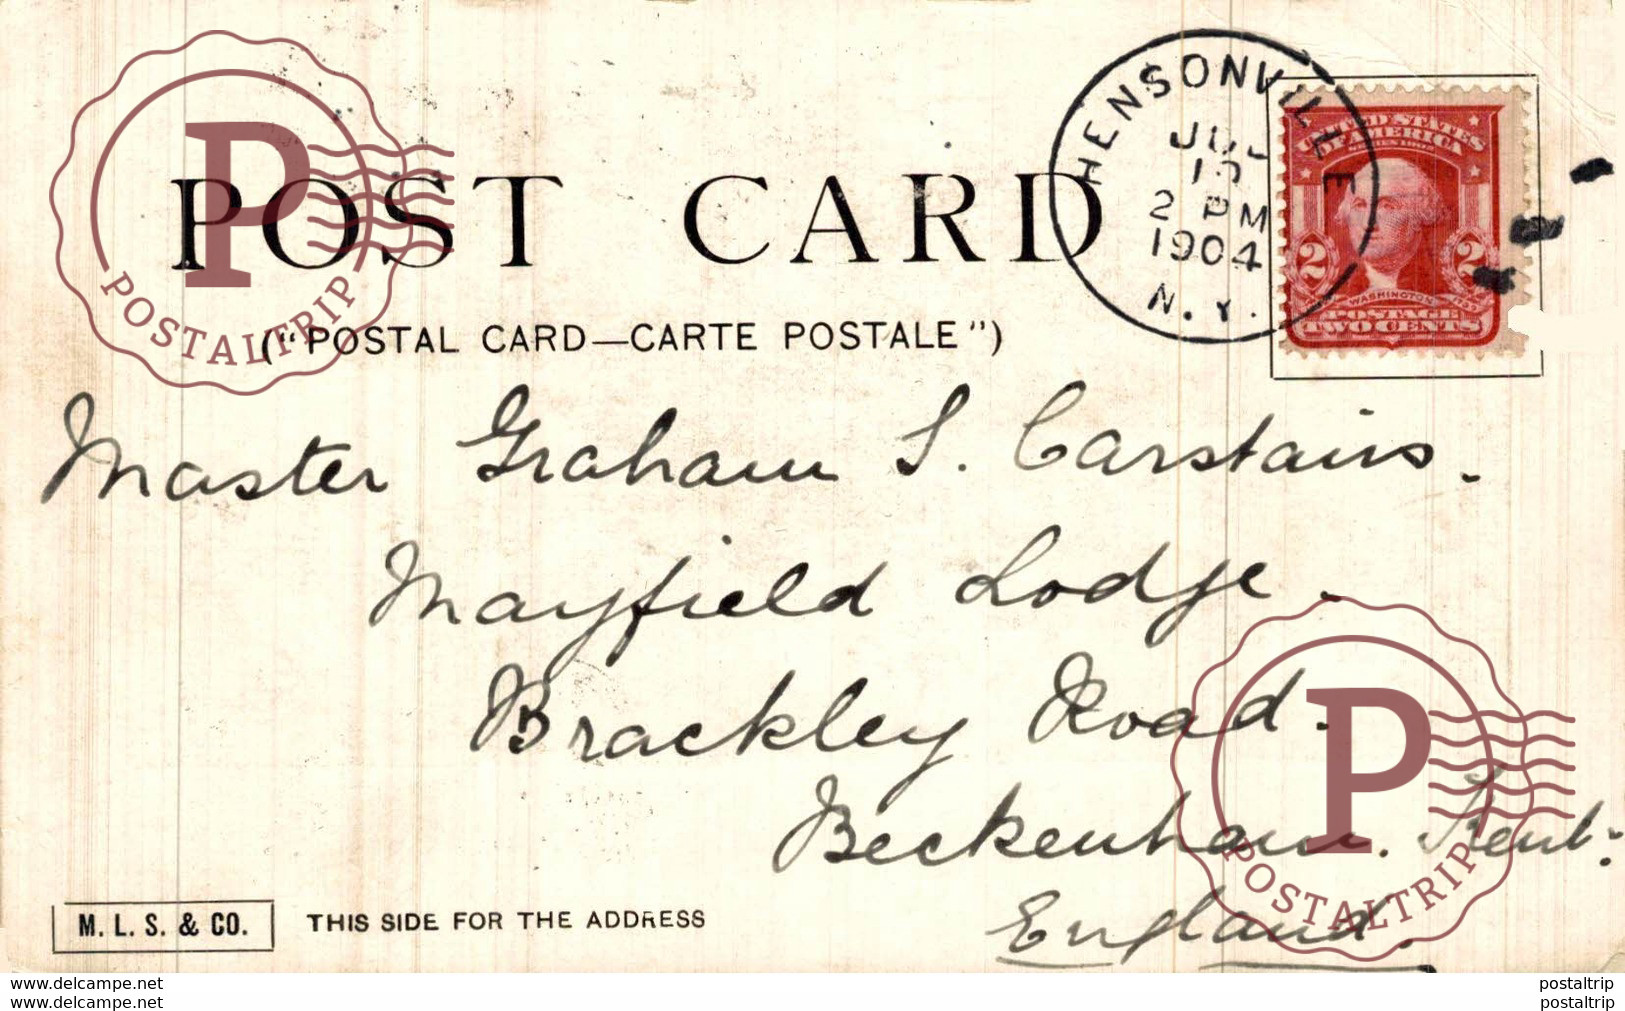 POST CARD
("POSTAL CARD—CARTE POSTALE")
HENSONVILLE
JUL
2 PM
1904
N.Y.
UNITED STATES
OF AMERICA
SERIES 1902
2 2
WASHINGTON
POSTAGE
TWO CENTS
P
POSTALTRIP
Master Graham S. Carstairs.
Mayfield Lodge.
Brackley Road.
Beckenham. Kent.
England.
P
POSTALTRIP
M. L. S. & CO.
THIS SIDE FOR THE ADDRESS
www.delcampe.net postaltrip
www.delcampe.net postaltrip